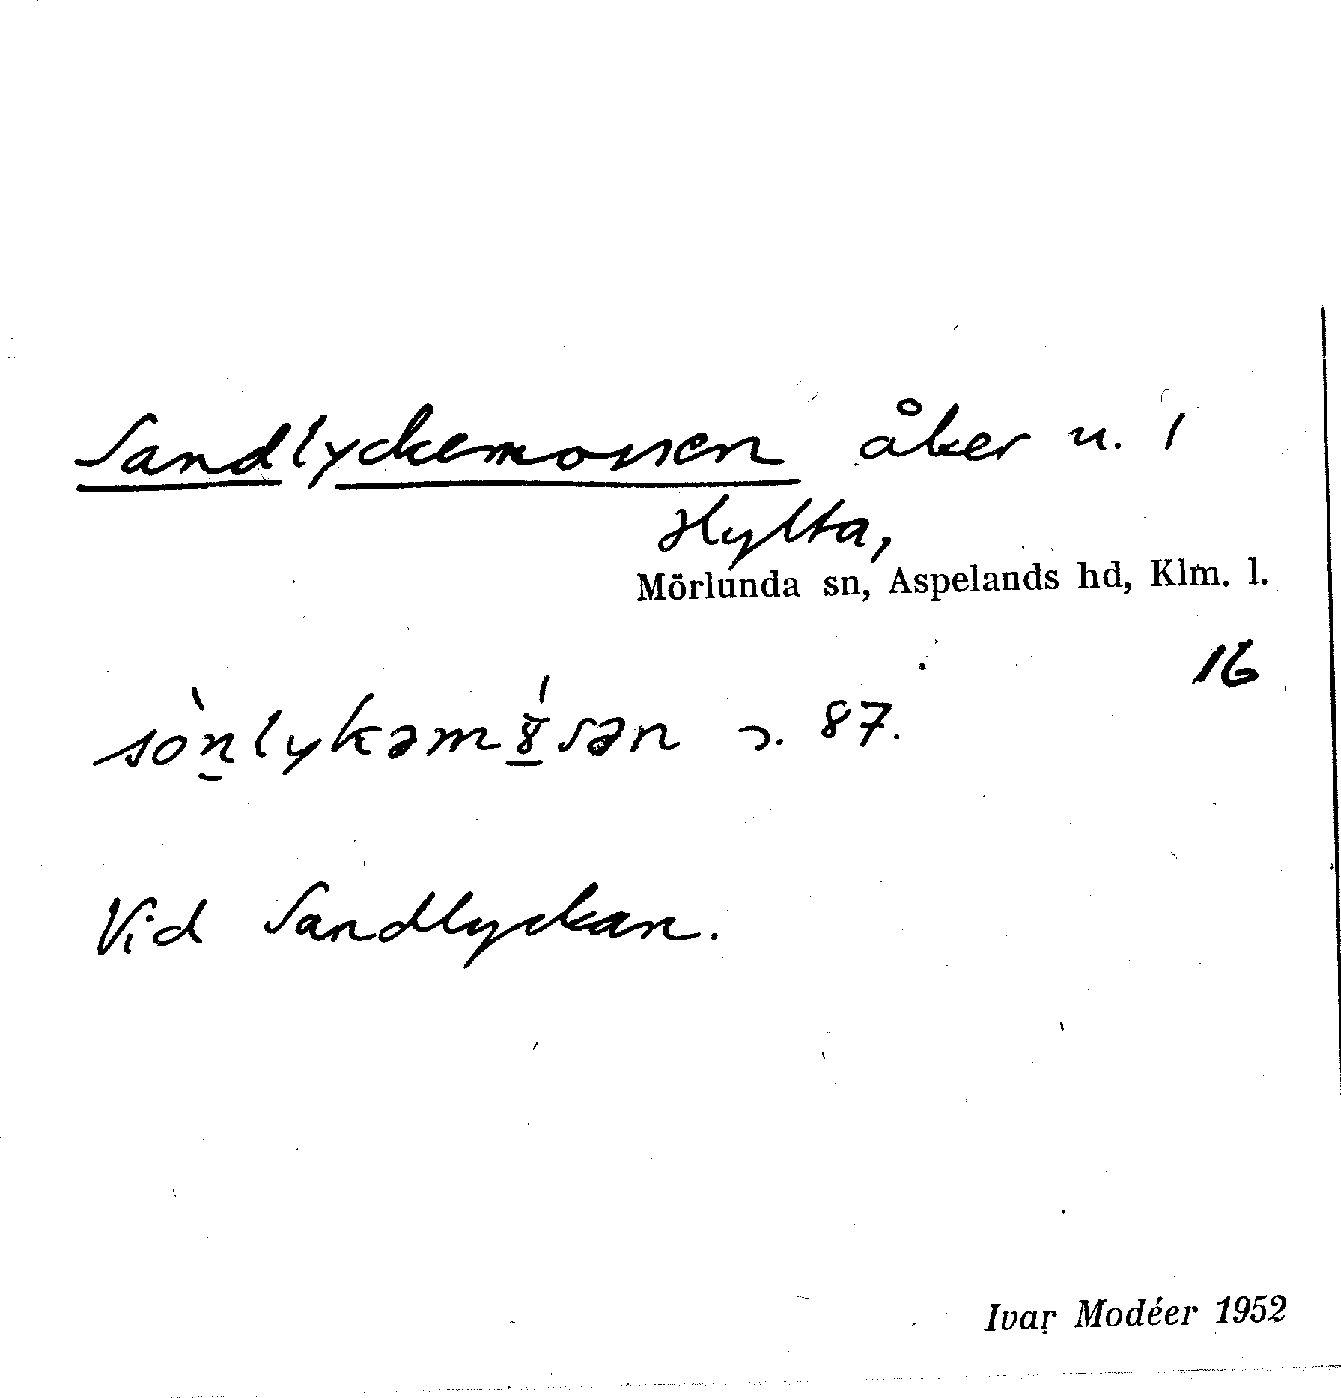 Sandlyckemossen åker u. 1
Hylta,
Mörlunda sn, Aspelands hd, Klm. l.
16
sònlykəm8́sən s. 87.
Vid Sandlyckan.
Ivar Modéer 1952